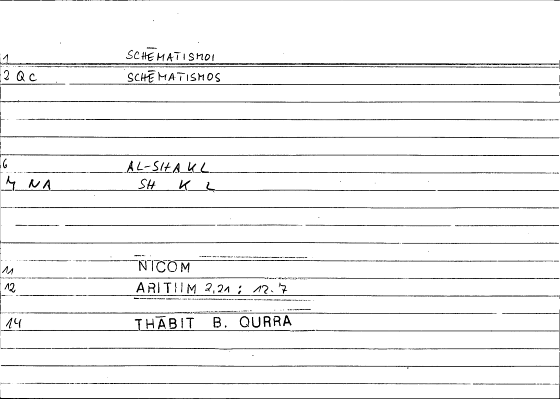 1 SCHĒMATISMOI
2 QC SCHĒMATISMOS
6 AL-SHAKL
7 NA SH K L
11 NICOM
12 ARITHM 2,21 : 12.7
14 THĀBIT B. QURRA